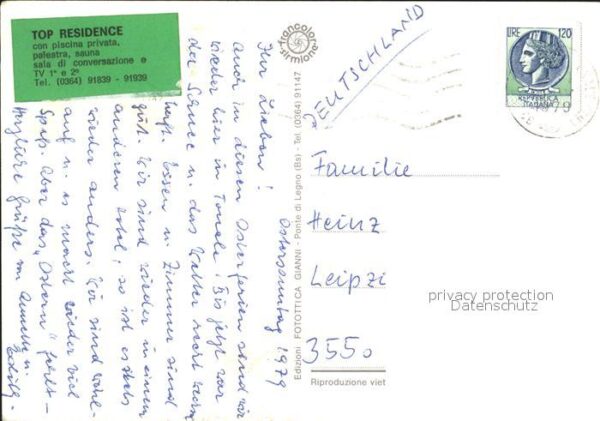 TOP RESIDENCE
con piscina privata,
palestra, sauna
sala di conversazione e
TV 1° e 2°
Tel. (0364) 91839 - 91939
Ostersonntag 1979
Ihr Lieben!
auch in diesen Osterferien sind wir
wieder hier in Tonale! Bis jetzt war
der Schnee u. das Wetter
Essen u. Zimmer sind
gut. Wir sind wieder in einem
anderen Hotel, so ist es stets
wieder anders. Wir sind
auf u. es macht wieder viel
Spaß. Aber das „Ostern" fehlt –
Herzliche Grüße von u.
francolor
sirmione
Edizioni FOTOTTICA GIANNI - Ponte di Legno (Bs) - Tel. (0364) 91147
Riproduzione viet
DEUTSCHLAND
LIRE 120
REPVBBLICA
ITALIANA
Familie
Heinz
Leipzi
3550
privacy protection
Datenschutz